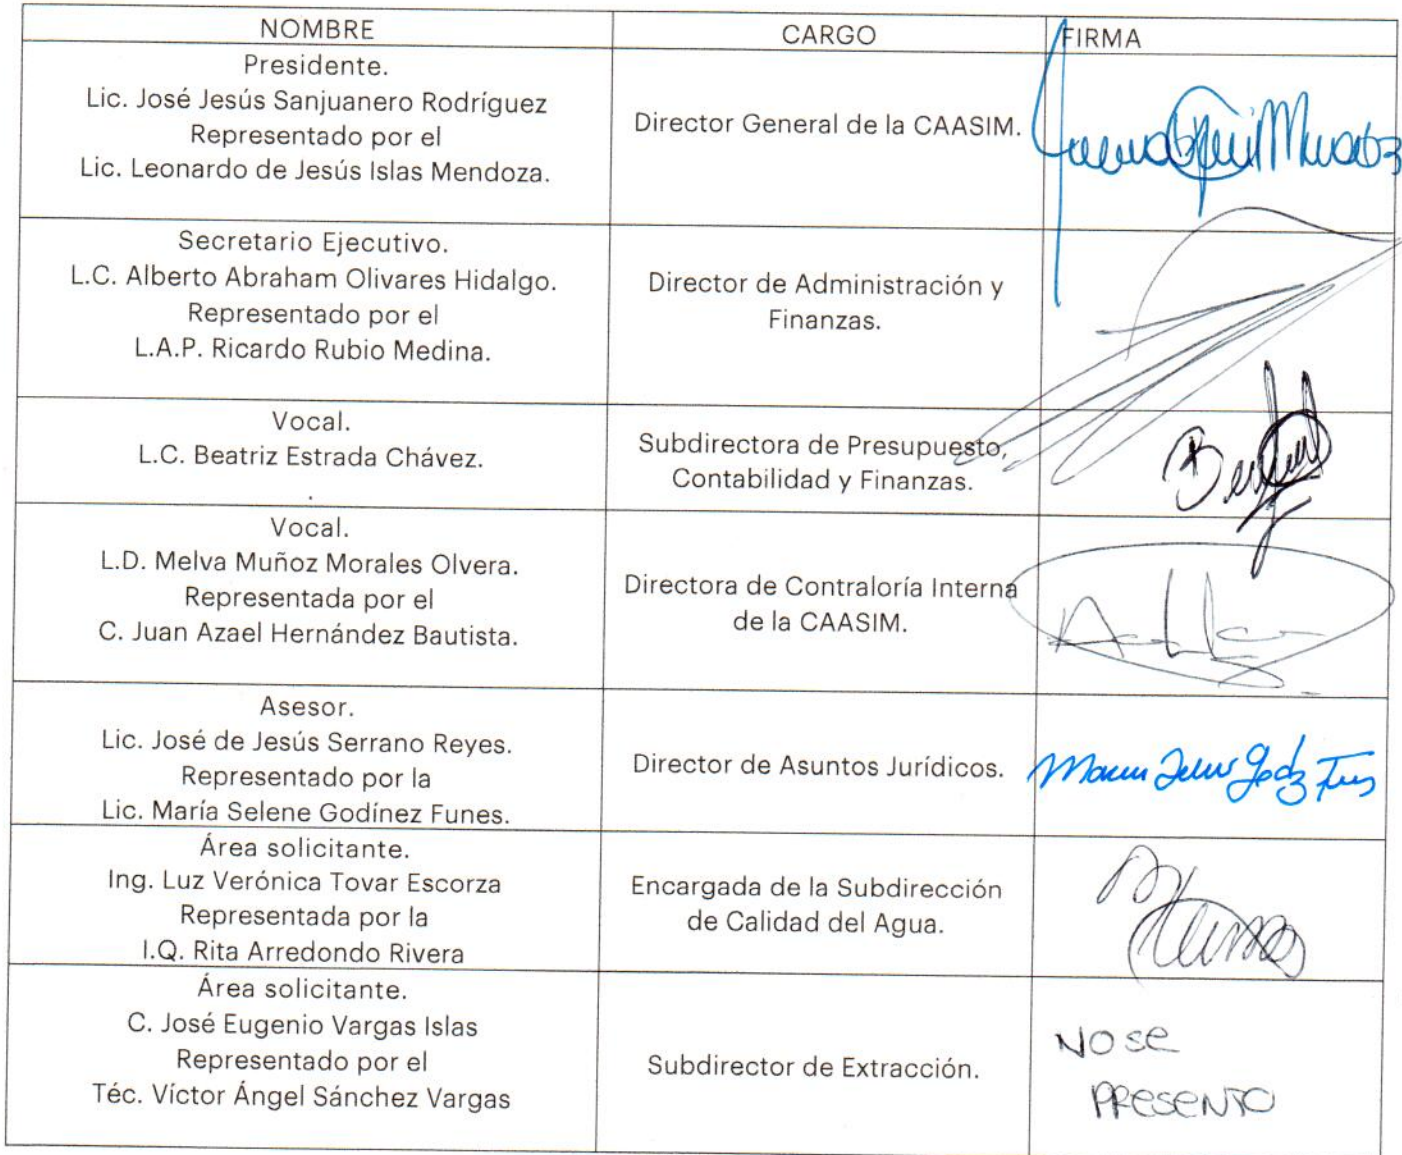 NOMBRE CARGO FIRMA
Presidente.
Lic. José Jesús Sanjuanero Rodríguez
Representado por el
Lic. Leonardo de Jesús Islas Mendoza.
Director General de la CAASIM.
Secretario Ejecutivo.
L.C. Alberto Abraham Olivares Hidalgo.
Representado por el
L.A.P. Ricardo Rubio Medina.
Director de Administración y
Finanzas.
Vocal.
L.C. Beatriz Estrada Chávez.
.
Subdirectora de Presupuesto,
Contabilidad y Finanzas.
Vocal.
L.D. Melva Muñoz Morales Olvera.
Representada por el
C. Juan Azael Hernández Bautista.
Directora de Contraloría Interna
de la CAASIM.
Asesor.
Lic. José de Jesús Serrano Reyes.
Representado por la
Lic. María Selene Godínez Funes.
Director de Asuntos Jurídicos.
Área solicitante.
Ing. Luz Verónica Tovar Escorza
Representada por la
I.Q. Rita Arredondo Rivera
Encargada de la Subdirección
de Calidad del Agua.
Área solicitante.
C. José Eugenio Vargas Islas
Representado por el
Téc. Víctor Ángel Sánchez Vargas
Subdirector de Extracción.
NO se
PRESENTO